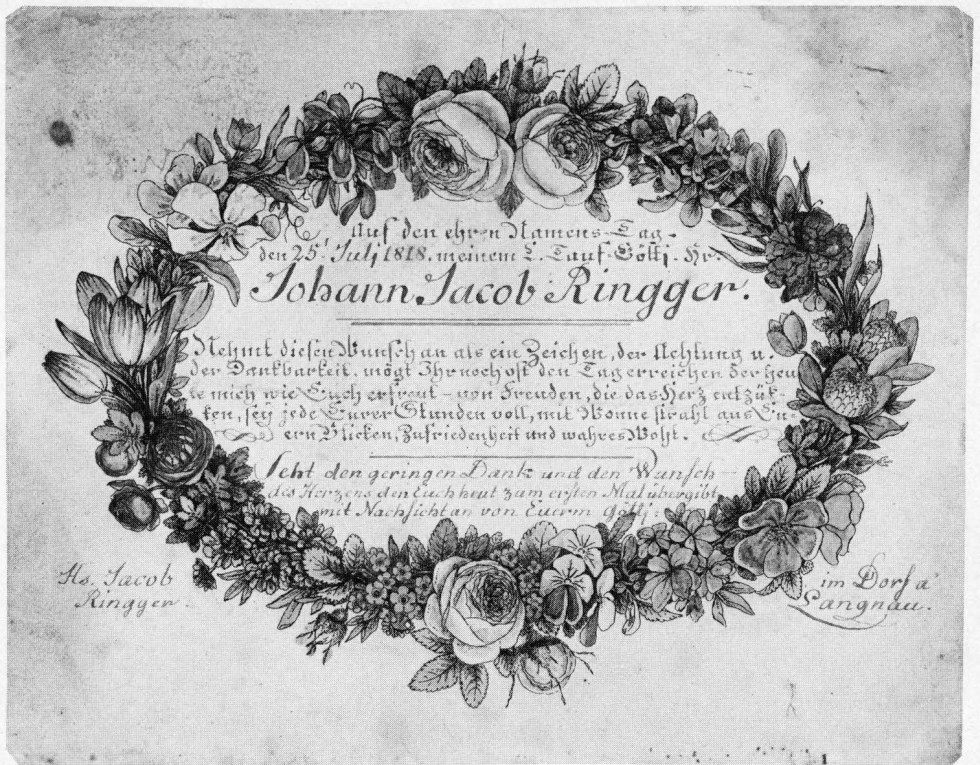 Auf den ehren Namens-Tag.
den 25t Julj 1818. meinem L. Tauf-Götti. Hr.
Johann Jacob Ringger.
Nehmt diesen Wunsch an als ein Zeichen, der Achtung u.
der Dankbarkeit, mögt Ihr noch oft den Tag erreichen der heu
te mich wie Euch erfreut - von Freuden, die das Herz entzük-
ken, sey jede Eurer Stunden voll, mit Wonne strahl aus Eu-
ern Blicken, Zufriedenheit und wahres Wohl.
Seht den geringen Dank und den Wunsch
des Herzens den Euch heut zum ersten Mal übergibt
mit Nachsicht an von Euerm Götti:
Hs. Jacob
Ringger.
im Dorf a'
Langnau.